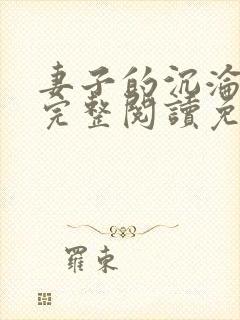 妻子的沉淪
完整閱讀免
羅東